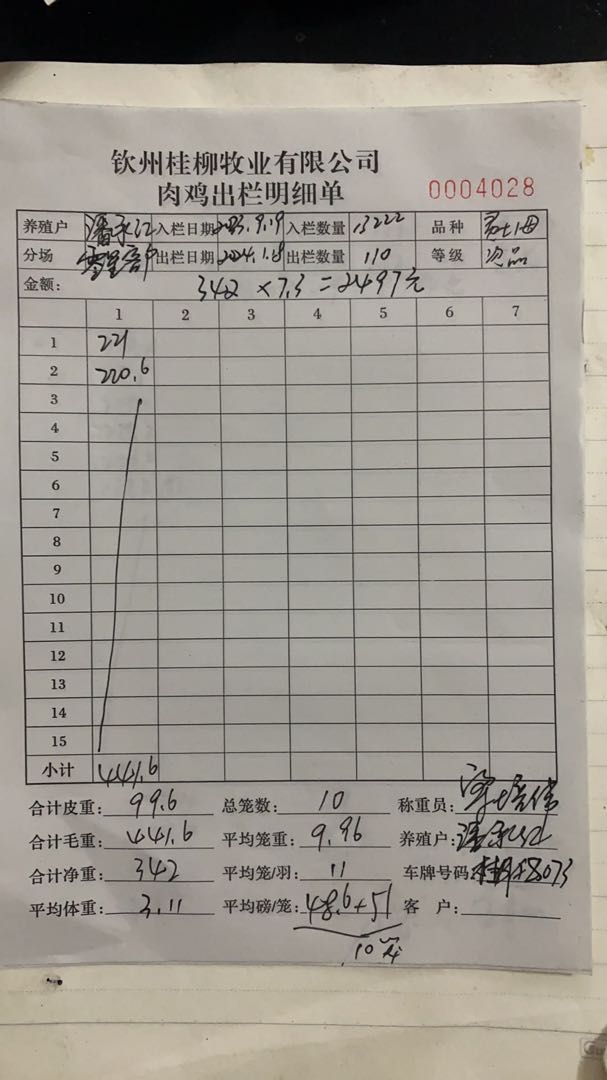 钦州桂柳牧业有限公司
肉鸡出栏明细单 0004028
养殖户 潘 入栏日期 2023.9.19 入栏数量 13222 品种
分场 出栏日期 2024.1.8 出栏数量 110 等级 次品
金额: 342×7.3=2497元
1 2 3 4 5 6 7
1 221
2 220.6
3
4
5
6
7
8
9
10
11
12
13
14
15
小计 441.6
合计皮重: 99.6 总笼数: 10 称重员:
合计毛重: 441.6 平均笼重: 9.96 养殖户: 潘
合计净重: 342 平均笼/羽: 11 车牌号码:
平均体重: 3.11 平均磅/笼: 48.6+51 客 户:
10笼